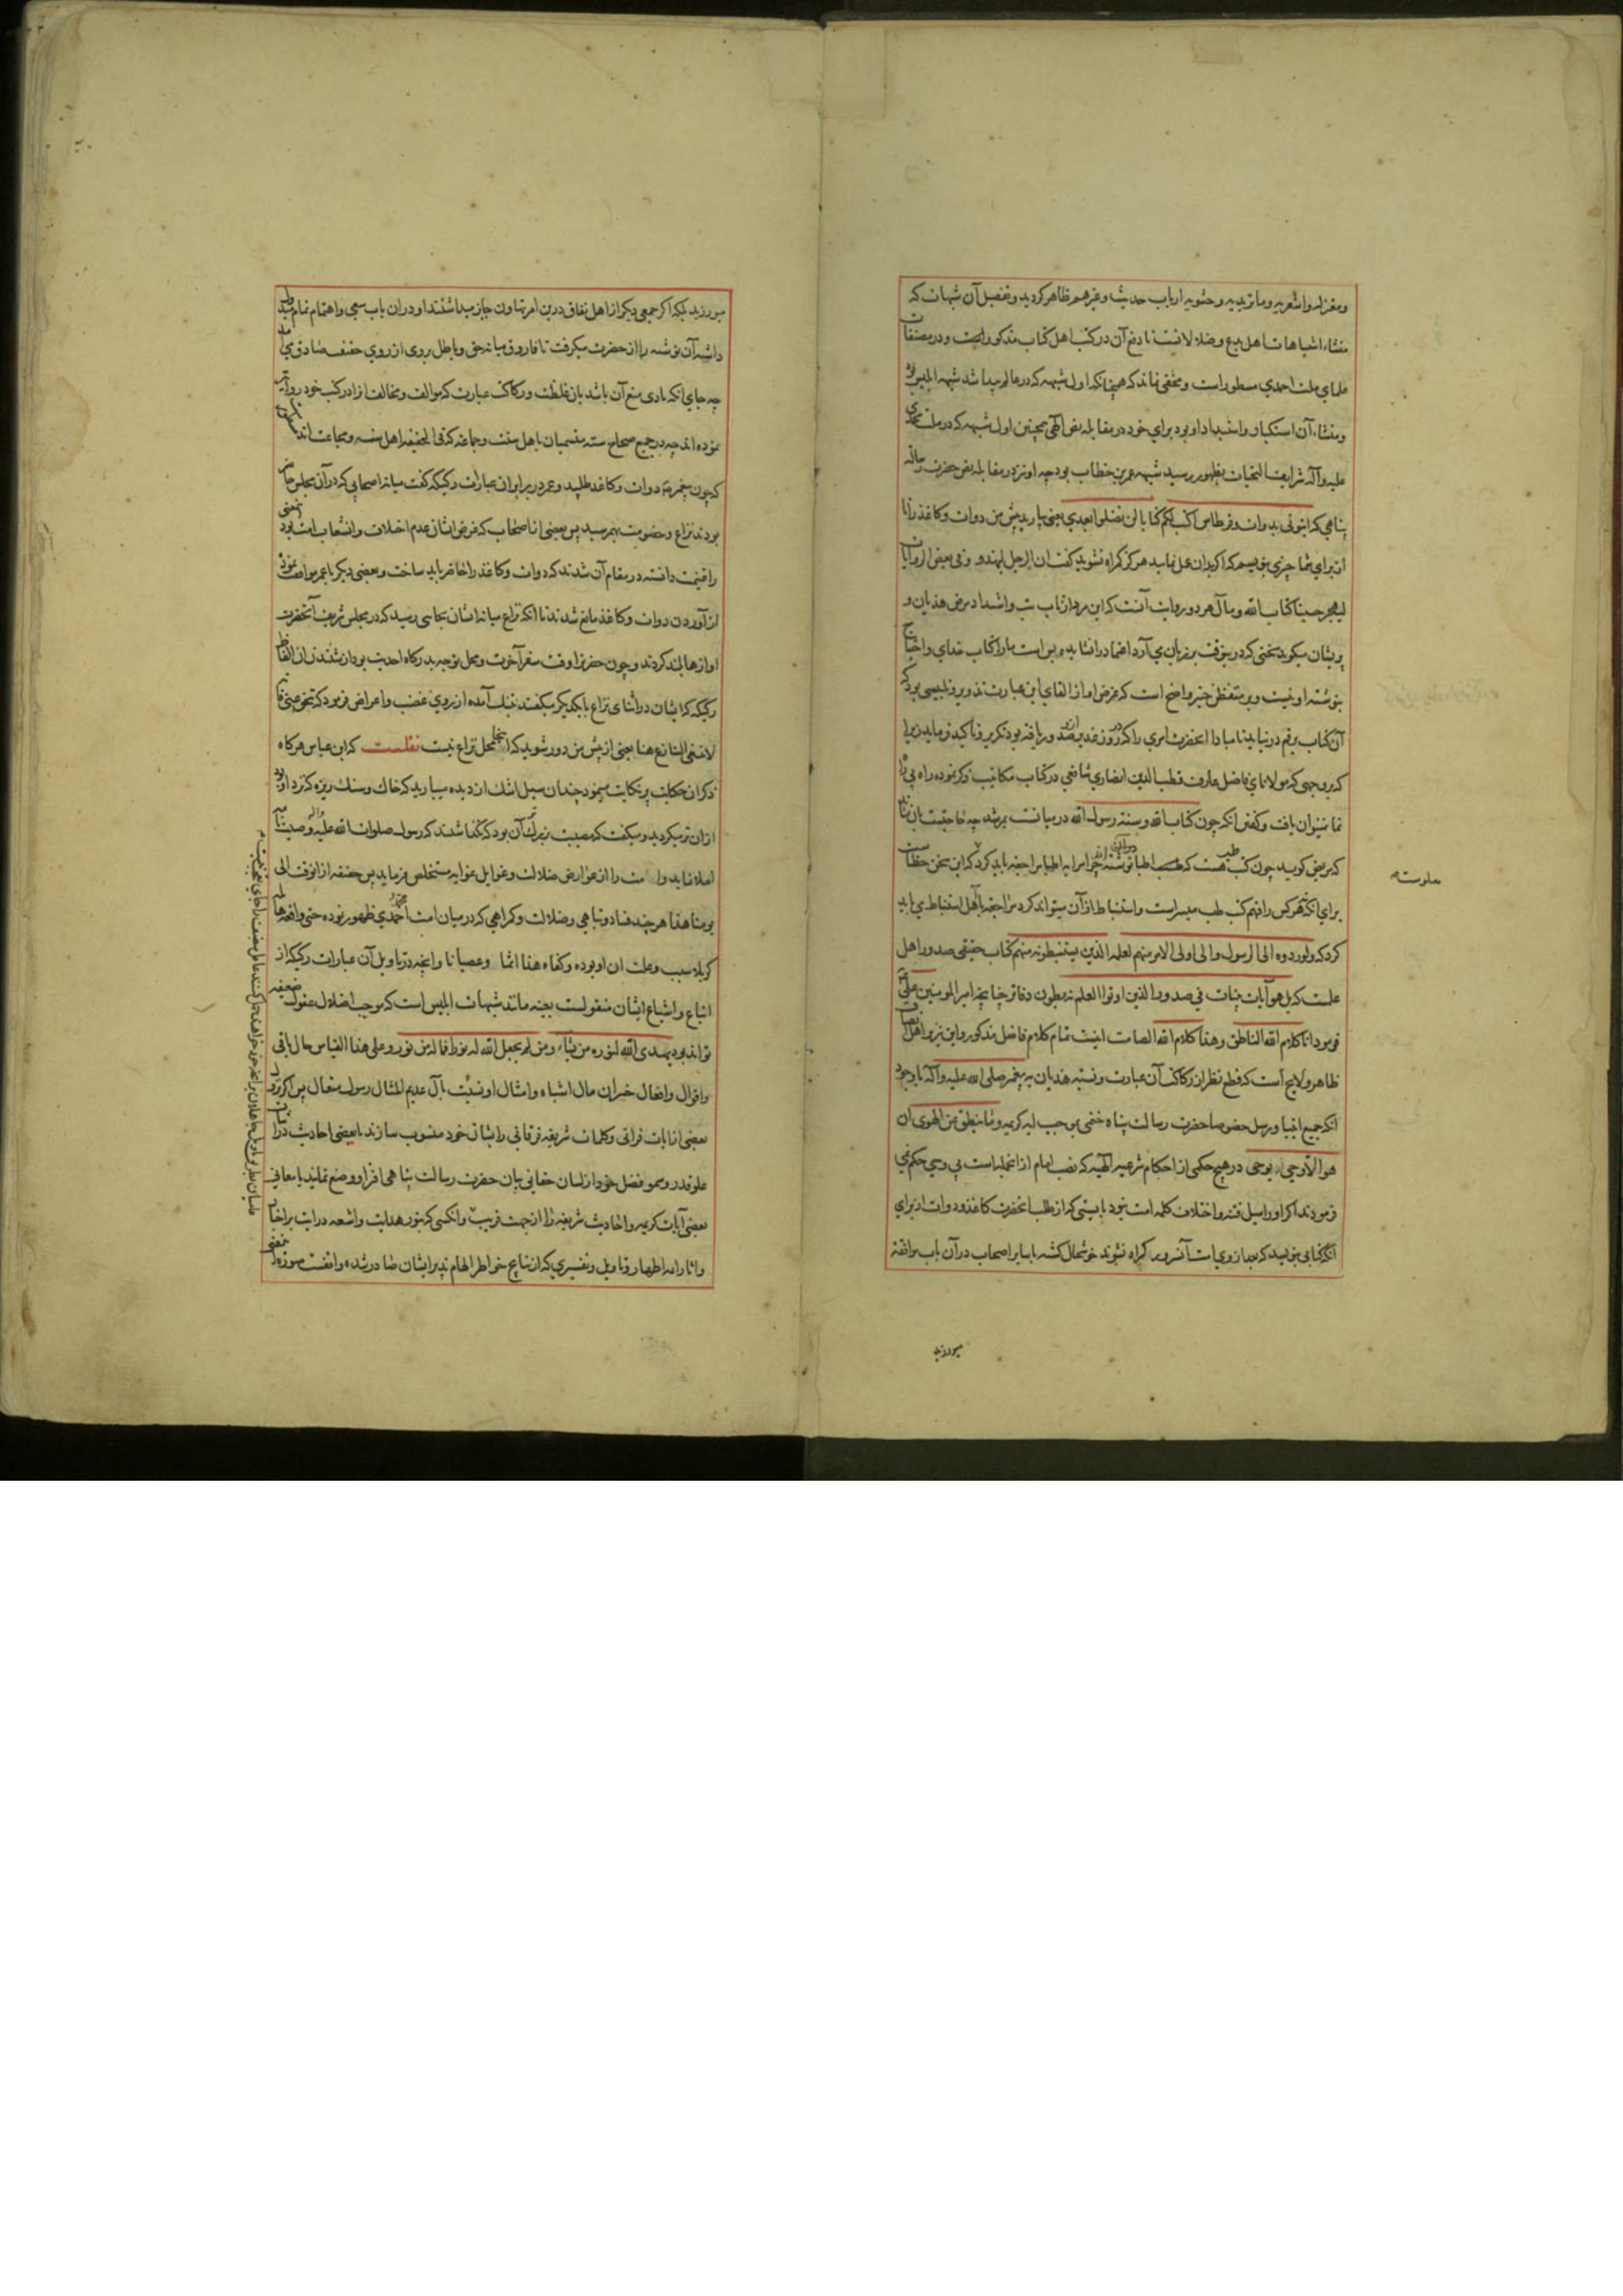 ومعتزله واشعریه وماتریدیه وحشویه ارباب حدیث وغیرهم ظاهر کردید وتفصیل آن شبهات که
منشاء اشتباهات اهل بدع وضلالاتست نا دفع آن در کتب اهل کتاب مذکور است ودر مصنفات
علمای ملت احمدی مسطور است ومخفی نماند که همچنانکه اول شبهه که در عالم پیدا شد شبهه ابلیس بود
ومنشاء آن استکبار واستبداد او بود برای خود در مقابله نص الهی همچنین اول شبهه که در ملت محمدی
علیه وآله شرایف التحیات بظهور رسید شبهه عمر بن خطاب بود چه او نیز در مقابله نص حضرت رسالت
پناهی که ایتونی بدوات وقرطاس اکتب لکم کتابا لن تضلوا بعدی یعنی بیارید پیش من دوات وکاغذ را تا
از برای شما چیزی بنویسم که اکر بدان عمل نمایید هرکز کمراه نشوید کفت ان الرجل لیهذو وفی بعض الروایات
لیهجر حسبنا کتاب الله ومآل هر دو روایت آنست که این مرد از تاب تب واشتداد مرض هذیان و
پریشان میکوید سخنی که درین وقت بر زبان می آرد اعتماد را نشاید وبس است ما را کتاب خدای واحتیاج
بنوشته او نیست وبر متفطن خبیر واضح است که غرض او از القای این عبارت تزویر وتلبیسی بود که
آن کتاب برقم در نیاید تا مبادا آنحضرت امری را که در روز غدیر از و دریافته بود تکریر وتاکید فرماید زیرا
که بر وجهی که مولانای فاضل عارف قطب الدین انصاری شافعی در کتاب مکاتیب ذکر نموده راه بی راه
نما نتوان یافت وکفتن آنکه چون کتاب الله وسنة رسول الله در میانست بمرشد چه حاجتست بان ماند
که مریض کوید چون کتب طب هست که اطبا نوشته اند چرا مرا به اطبا مراجعه باید کرد که این سخن خطاست
برای آنکه نه هر کس را فهم کتب طب میسر است واستنباط از آن میتواند کرد مراجعه باهل استنباط می باید
کرد که ولو ردوه الی الرسول والی اولی الامر منهم لعلمه الذین یستنبطونه منهم کتاب حقیقی صدور اهل
علمست که بل هو آیات بینات فی صدور الذین اوتوا العلم نه بطون دفاتر چنانچه امیر المومنین علی
فرمود انا کلام الله الناطق وهذا کلام الله الصامت اینست تمام کلام فاضل مذکور واین نیز بر اهل انصاف
ظاهر ولایح است که قطع نظر از رکاکت آن عبارت ونسبت هذیان به پیغمبر صلی الله علیه وآله با وجود
آنکه جمیع انبیا ورسل خصوصا حضرت رسالت پناه وختمی بموجب آیه کریمه وما ینطق عن الهوی ان
هو الا وحی یوحی در هیچ حکمی از احکام شرعیه الهیه که نصب امام از انجمله است بی وحی حکم نمی
فرمودند اکر او را میل فتنه واختلاف کلمه امت نبود بایستی که از طلب آنحضرت کاغذ ودوات از برای
آنکه کتابی بنویسد که بعد از وی امت آن سرور کمراه نشوند خوشحال کشته با سایر اصحاب در آن باب موافقت
میورزید
معلومست
میورزید بلکه اکر جمعی دیکر از اهل نفاق درین امر تهاون جایز میداشتند او در ان باب سعی واهتمام تمام
داشته آن نوشته را از آنحضرت میکرفت تا فاروق میانه حق وباطل بودی از روی حقیقت صادق می آمد
چه جای آنکه بادی منع آن باشد بان غلظت ورکاکت عبارت که موالف ومخالف آنرا در کتب خود روایت
نموده اند چه در جمیع صحاح سته متسمیان باهل سنت وجماعه که فی الحقیقه اهل سنه ومجاعت اند
که چون پیغمبر دوات وکاغذ طلبید وعمر در برابر او آن عبارات رکیکه کفت میانه اصحابی که در آن مجلس حاضر
بودند نزاع وخصومت بهم رسید پس بعضی از اصحاب که غرض ایشان عدم اختلاف وانشعاب امت بود
را غنیمت دانسته در مقام آن شدند که دوات وکاغذ را حاضر باید ساخت وبعضی دیکر با عمر موافقت نموده
از آوردن دوات وکاغذ مانع شدند تا آنکه نزاع میانه ایشان بجایی رسید که در مجلس شریف آنحضرت
اوازها بلند کردند وچون حضرت را وقت سفر آخرت ومحل توجه بدرکاه احدیت بود از شنیدن آن الفاظ
رکیکه که ایشان در اثنای نزاع با یکدیکر میکفتند بتنک آمده از روی غضب واعراض فرمود که تنحو عنی فانه
لا ینبغی التنازع هنا یعنی از پیش من دور شوید که اینجا محل نزاع نیست نقلست که ابن عباس هرکاه
ذکر ان حکایت پر نکایت مینمود چندان سیل اشک از دیده میبارید که خاک وسنک ریزه که نزد او بود
ازان تر میکردید ومیکفت که مصیبت بزرک آن بود که نکذاشتند که رسول صلوات الله علیه وآله وصیت نامه
املا نماید و امت را از عوارض ضلالت وغوایل غوایه مستخلص فرماید پس حقیقه از انوقت الی
یومنا هذا هر چند فساد وتباهی وضلالت وکمراهی که در میان امت احمدی ظهور نموده حتی واقعه
کربلا سبب وعلت ان او بوده وکفاه هذا اثما وعصیانا وآنچه در تاویل آن عبارات رکیکه از
اتباع واشیاع ایشان منقولست بعینه مانند شبهات ابلیس است که موجب اضلال عقول ضعیفه
تواند بود یهدی الله لنوره من یشاء ومن لم یجعل الله له نورا فما له من نور وعلی هذا القیاس حال باقی
واقوال وافعال خسران مآل اشباه وامثال او نسبت بآل عدیم المثال رسول متعال پس اکر
بعضی از ایات قرانی وکلمات شریفه فرقانی را بشان خود منسوب سازند یا بعضی احادیث در
علو قدر وسمو فضل خود از لسان حقایق بیان حضرت رسالت پناهی افترا و وضع نمایند یا معانی
بعضی آیات کریمه واحادیث شریفه را از جهت فریب